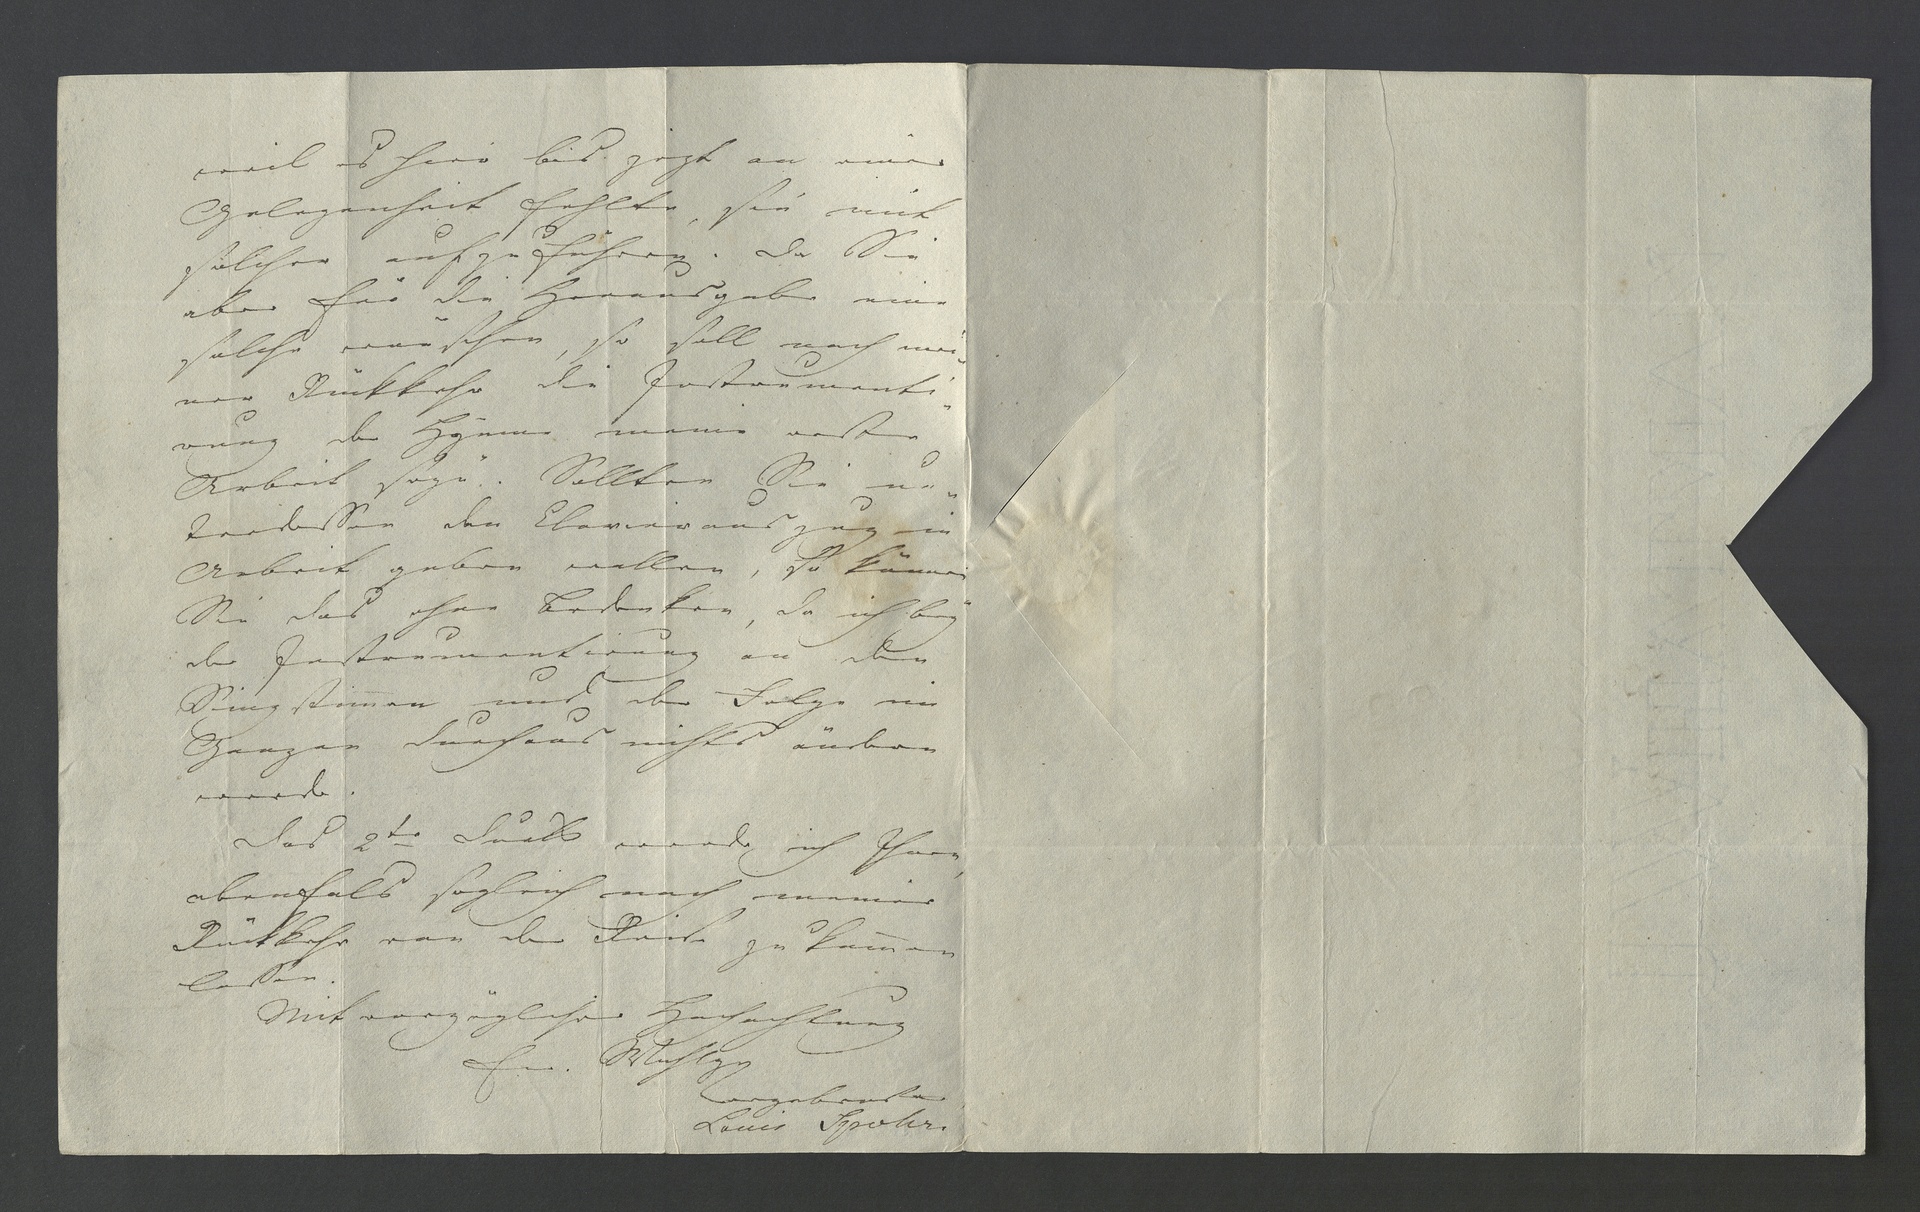 weil es hier bis jezt an einer
Gelegenheit fehlte, sie mit
solcher aufzuführen. Da Sie
aber für die Herausgabe eine
solche wünschen, so soll nach mei-
ner Rückkehr die Instrumenti-
rung der Hymne meine erste
Arbeit seyn. Sollten Sie un-
terdessen den Clavierauszug in
Arbeit geben wollen, so können
Sie das ohne Bedenken, da ich bey
der Instrumentirung an den
Singstimmen und der Folge im
Ganzen durchaus nichts ändern
werde.
Das 2te Duett werde ich Ihnen
ebenfals sogleich nach meiner
Rückkehr von der Reise zukommen
lassen.
Mit vorzüglicher Hochachtung
Ew. Wohlgb
ergebenster
Louis Spohr.